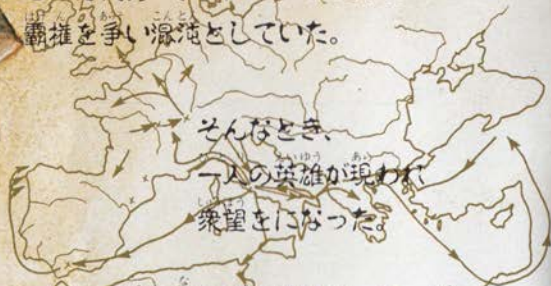 覇権を争い混沌としていた。
そんなとき、
一人の英雄が現われ
衆望をになった。